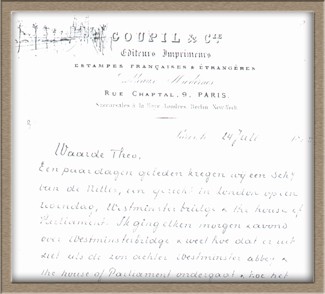 GOUPIL & CIE
Editeurs Imprimeurs
ESTAMPES FRANÇAISES & ÉTRANGÈRES
RUE CHAPTAL, 9, PARIS.
Succursales à la Haye, Londres, Berlin, New-York.
24 Juli
Waarde Theo,
Een paar dagen geleden kregen wij een schij
van de Nittis, een gezicht in Londen op een
regendag, Westminsterbridge & the house of
Parliament. Ik ging elken morgen & avond
over Westminsterbridge & weet hoe dat er uit
ziet als de zon achter Westminster abbey &
the house of Parliament ondergaat & hoe het